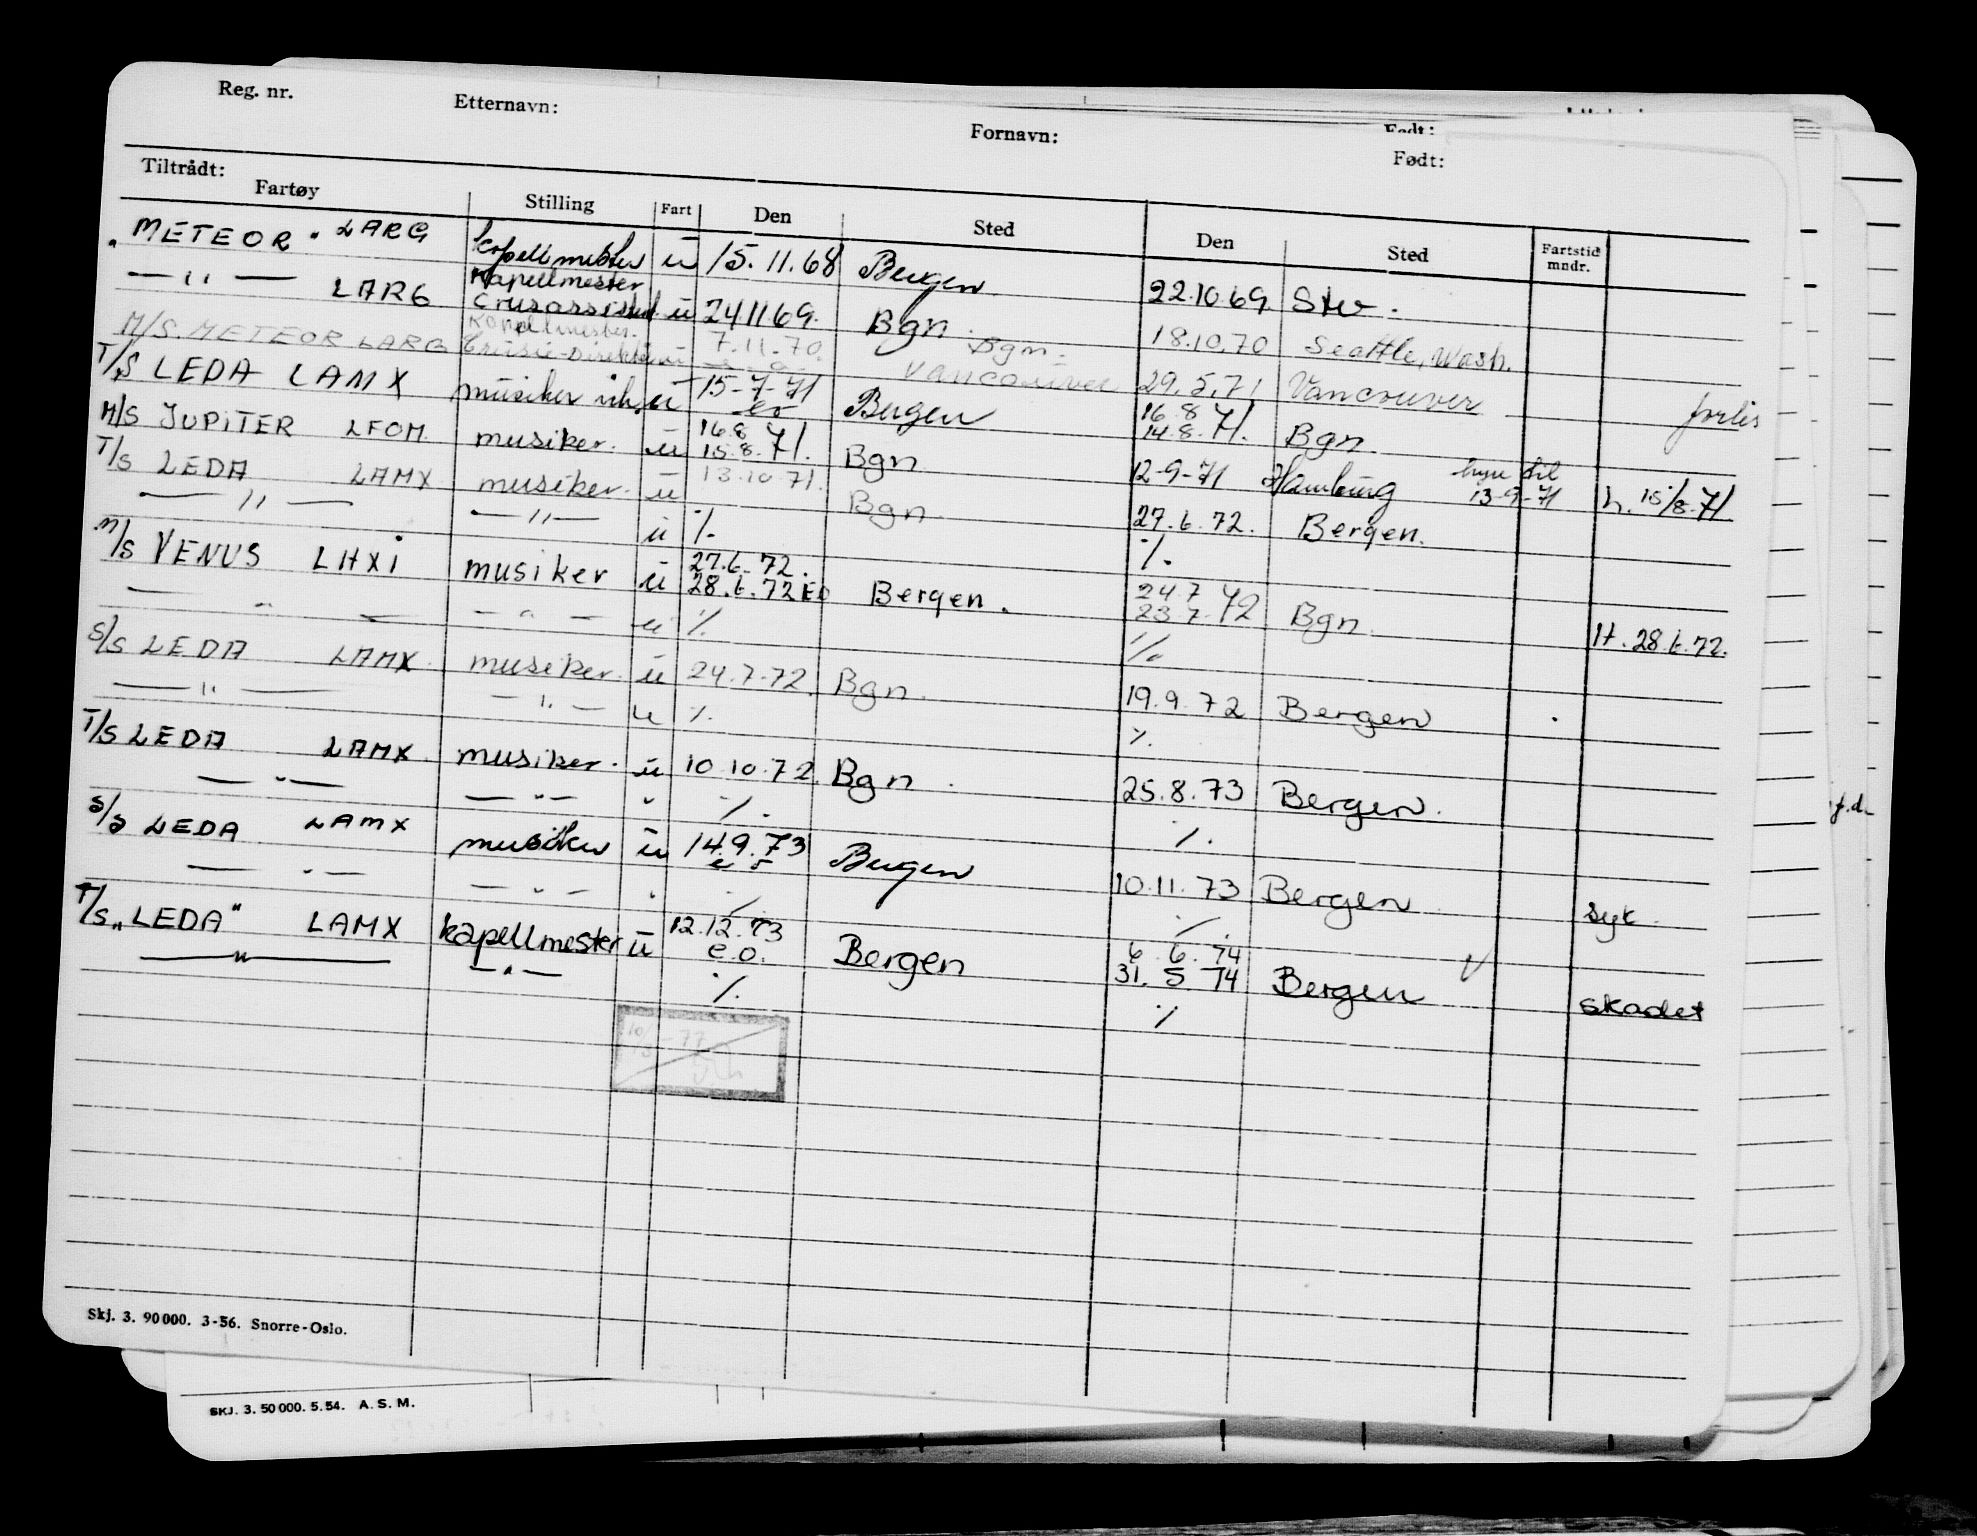 Reg. nr. Etternavn: Fornavn: Født:
Født:
Tiltrådt:
Fartøy Stilling Fart Den Sted Den Sted Fartstid mndr.
"METEOR" LARG kapellmester u 15.11.68 Bergen 22.10.69 Stv.
— " — LARG Kapellmester u 24.11.69. Bgn. 18.10.70 Seattle, Wash.
M/S. METEOR LARG Kapellmester Cruise-Direktør u 7.11.70. Bgn. Vancouver 29.5.71 Vancouver forlis
T/S LEDA LAMX musiker u 15-7-71 eo Bergen 16.8 14.8.71. Bgn.
M/S JUPITER LFOM musiker. u 16.8 15.8.71. Bgn 12-9-71 Hamburg hyre til 13-9-71 h. 15/8-71
T/S LEDA LAMX musiker. u 13.10.71. Bgn. 27.6.72. Bergen.
— " — — " — u %. %.
M/S VENUS LHXI musiker u 27.6.72. 28.6.72 EO Bergen. 24.7 23.7.72 Bgn. H. 28.6.72.
— " — — " — u %. %.
S/S LEDA LAMX. musiker. u 24.7.72. Bgn. 19.9.72 Bergen
— " — — " — u %. %.
T/S LEDA LAMX. musiker. u 10.10.72. Bgn. 25.8.73 Bergen.
— " — — " — " %. %.
S/S LEDA LAMX musiker u 14.9.73 e o Bergen 10.11.73 Bergen syk
— " — — " — " % %
T/S "LEDA" LAMX kapellmester u 12.12.73 e.o. Bergen 6.6.74 31.5.74 Bergen skadet
— " — — " — %. %
Skj. 3. 90000. 3-56. Snorre-Oslo.
SKJ. 3. 50000. 5.54. A. S. M.